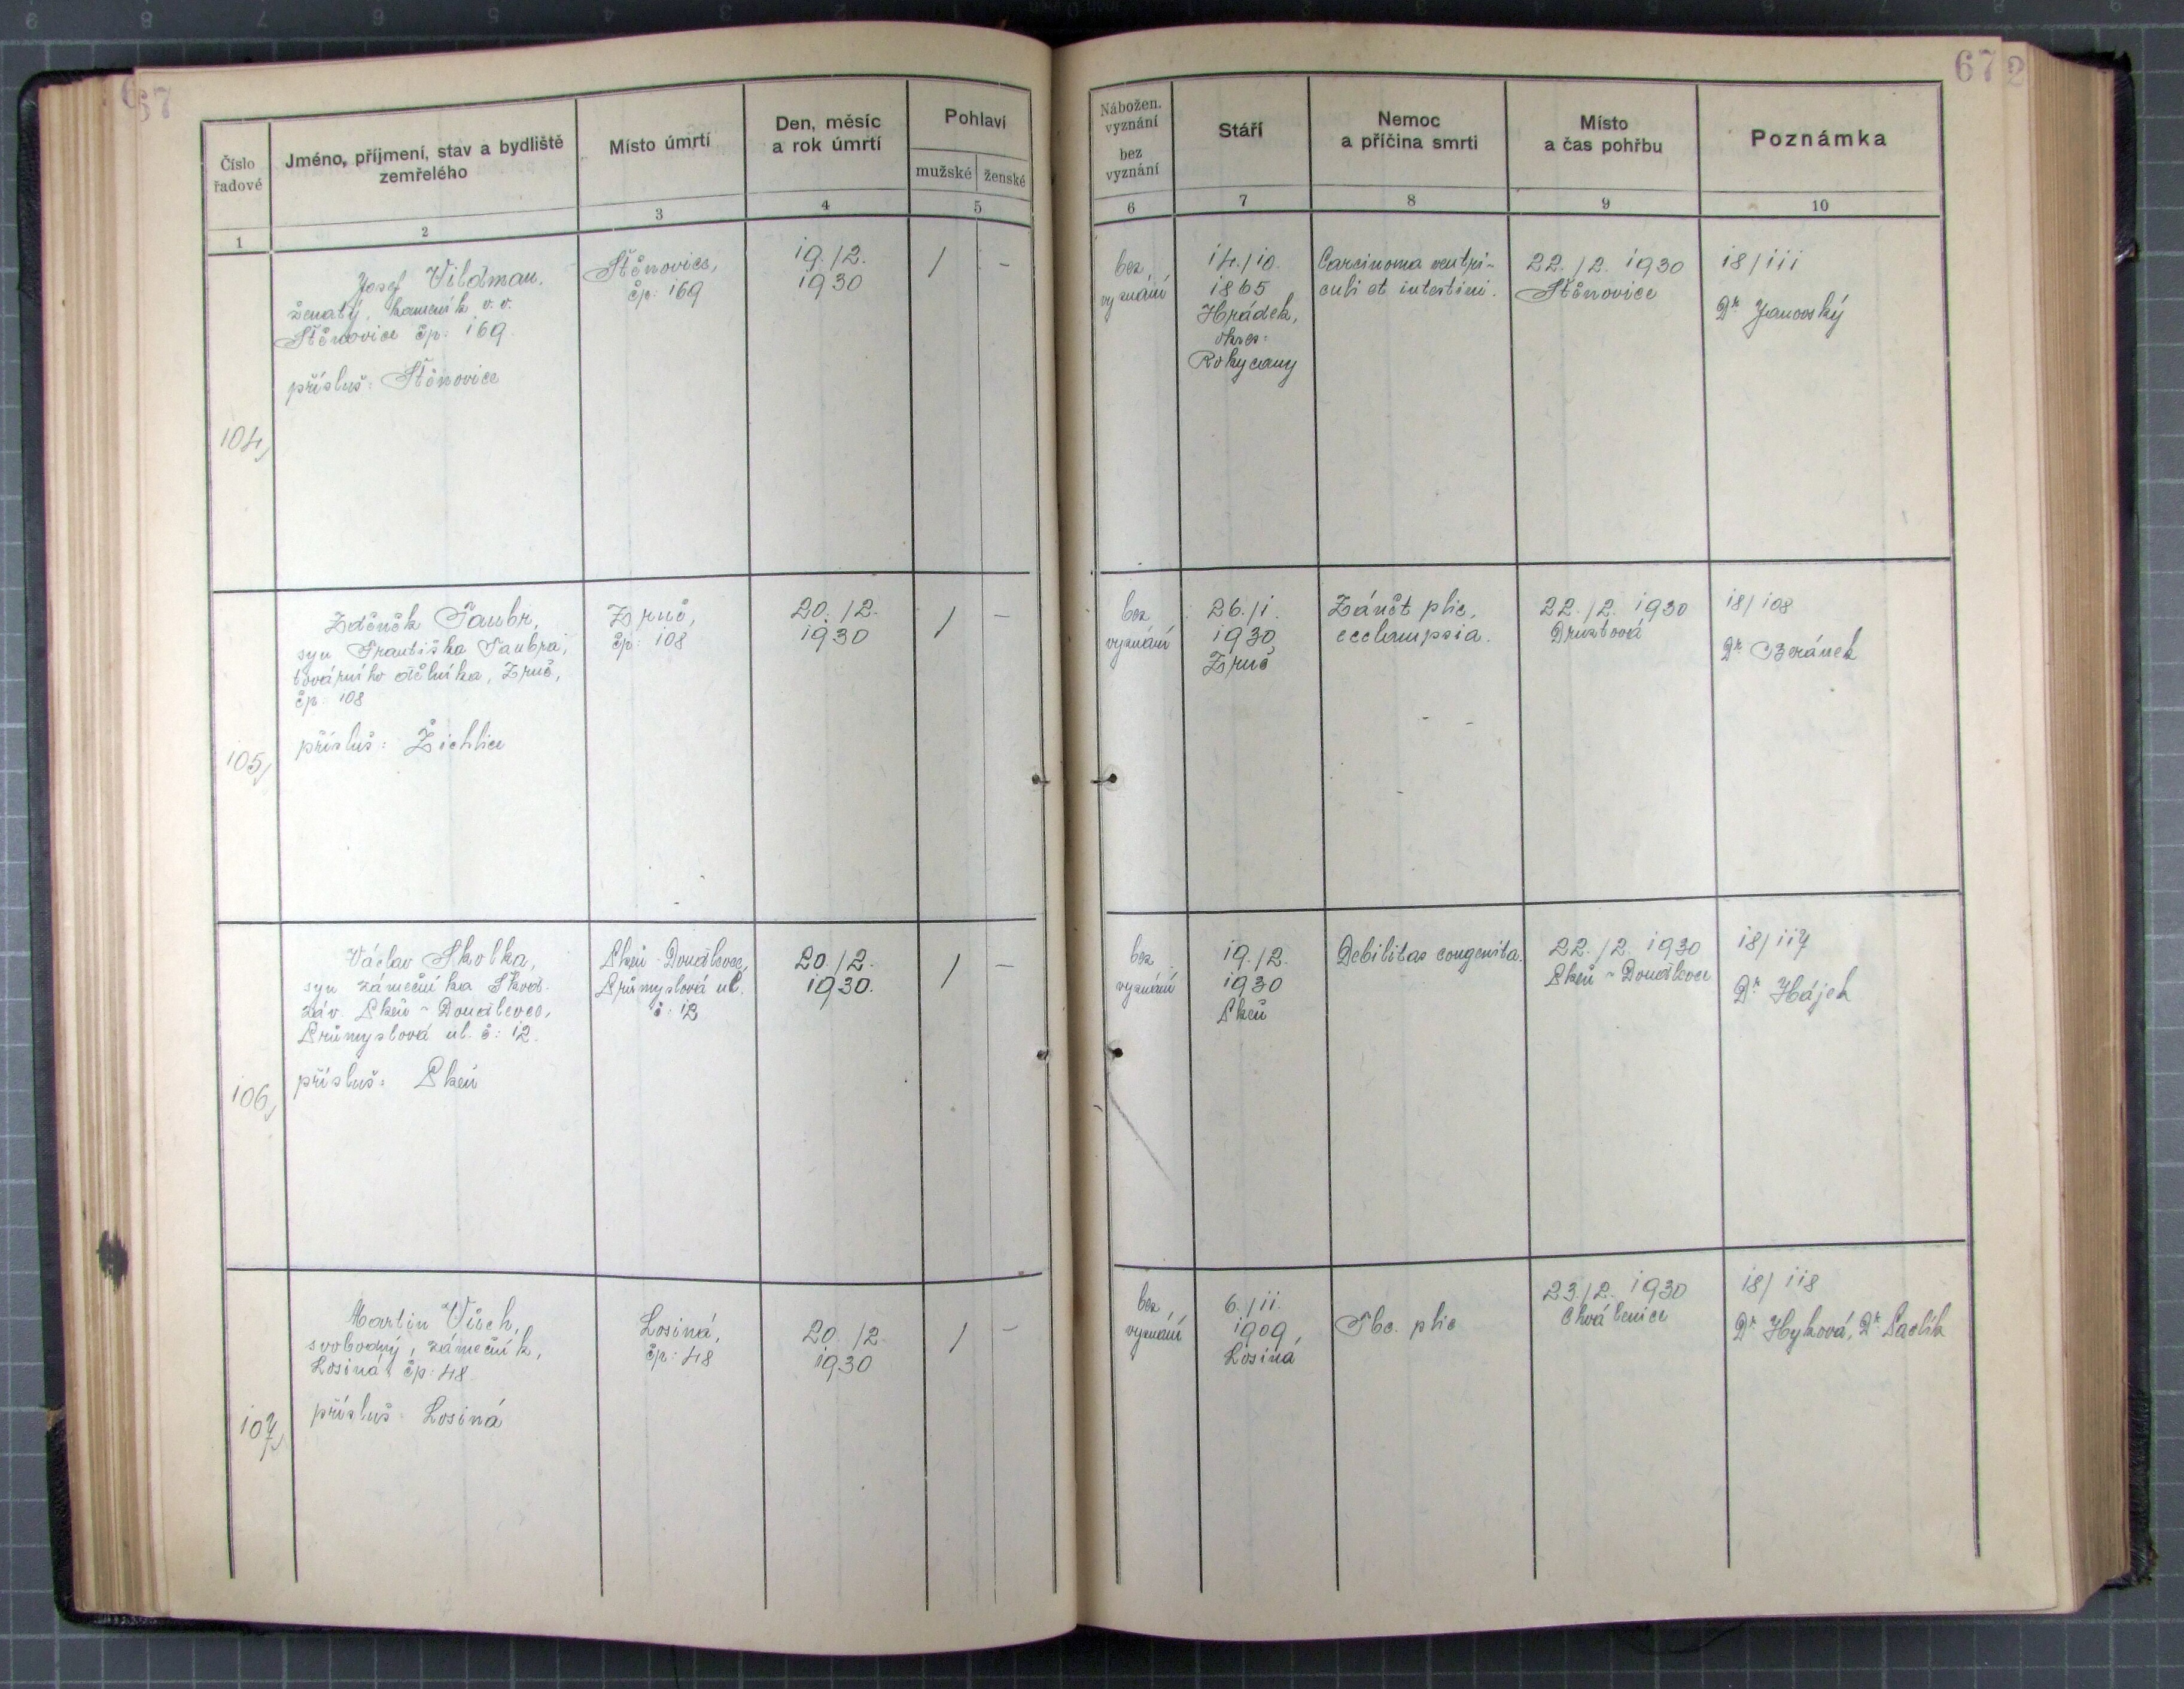 67
67
2
Číslo
řadové
Jméno, příjmení, stav a bydliště
zemřelého
Místo úmrtí
Den, měsíc
a rok úmrtí
Pohlaví
mužské
ženské
Nábožen.
vyznání
bez
vyznání
Stáří
Nemoc
a příčina smrti
Místo
a čas pohřbu
Poznámka
1
2
3
4
5
6
7
8
9
10
104)
Josef Vildman,
ženatý, kameník v. v.
Štěnovice čp. 169
přísluš: Štěnovice
Štěnovice,
čp: 169
19./2.
1930
/
-
bez
vyznání
14./10.
1865
Hrádek,
okres:
Rokycany
Carcinoma ventri-
culi et intestini.
22./2. 1930
Štěnovice
18/111
Dr Janovský
105)
Zděněk Taubr,
syn Františka Taubra,
továrního dělníka, Zruč,
čp 108
přísluš: Žichlice
Zruč,
čp: 108
20./2.
1930
/
-
bez
vyznání
26./1.
1930,
Zruč
Zánět plic,
ecclampsia.
22./2. 1930
Druztová
18/108
Dr Beránek
106)
Václav Skolka,
syn zámečníka Škod.
záv. Plzeň - Doudlevce,
Průmyslová ul. č: 12.
přísluš: Plzeň
Plzeň - Doudlevce,
Průmyslová ul.
č: 12
20./2.
1930.
/
-
bez
vyznání
19./2.
1930
Plzeň
Debilitas congenita.
22./2. 1930
Plzeň - Doudlevce
18/117
Dr Hájek
107)
Martin Vísch,
svobodný, zámečník,
Losiná, čp: 48
přísluš: Losiná
Losiná,
čp: 48
20./2.
1930
/
-
bez
vyznání
6./11.
1909,
Losiná
Tbc. plic
23./2. 1930
Chválenice
18/118
Dr Hyková, Dr Pavlík